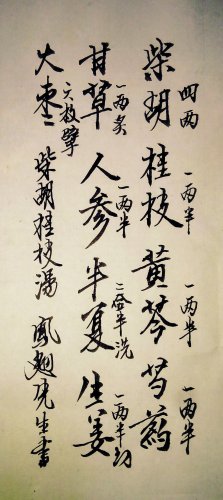 柴胡四两桂枝一两半黄芩一两半芍药一两半
甘草一两炙人参一两半半夏二合半洗生姜一两半切
大枣六枚擘柴胡桂枝湯先生書